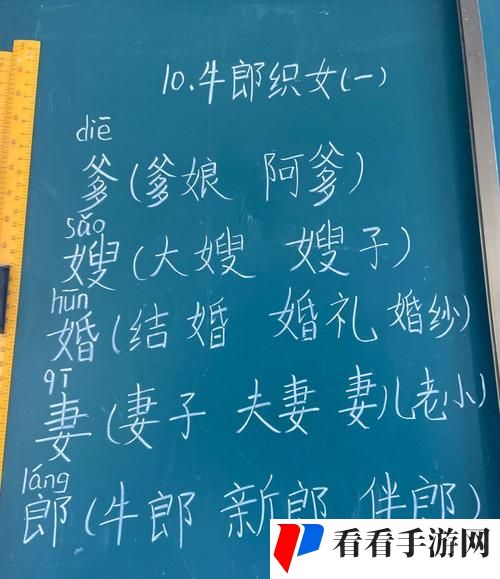 10.牛郎织女(一)
diē
爹(爹娘 阿爹)
sǎo
嫂(大嫂 嫂子)
hūn
婚(结婚 婚礼 婚纱)
qī
妻(妻子 夫妻 妻儿老小)
láng
郎(牛郎 新郎 伴郎)
看看手游网